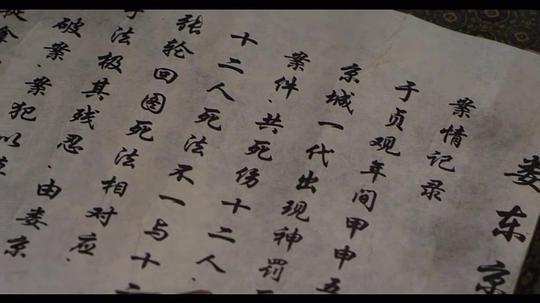 娄东京
案情记录
于贞观年间甲申五
京城一代出现神罚
案件.共死伤十二人
十二人死法不一与十二
张轮回图死法相对应.
手法极其残忍.由娄京
破案.案犯以